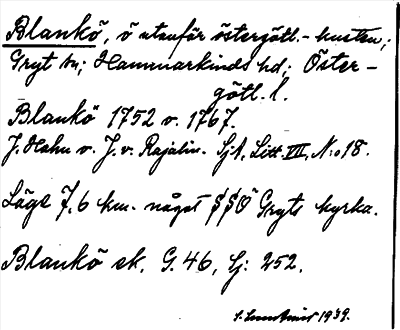 Blankö, ö utanför östergötl.-kusten,;
Gryt sn; Hammarkinds hd; Öster-
götl. l.
Blankö 1752 o. 1767.
J. Hahn o. J. v. Rajalin. Sjk, Litt. VII, N:o 18.
Läge 7,6 km. något SSO Gryts kyrka.
Blankö ek. G. 46, Sj: 252.
1939.